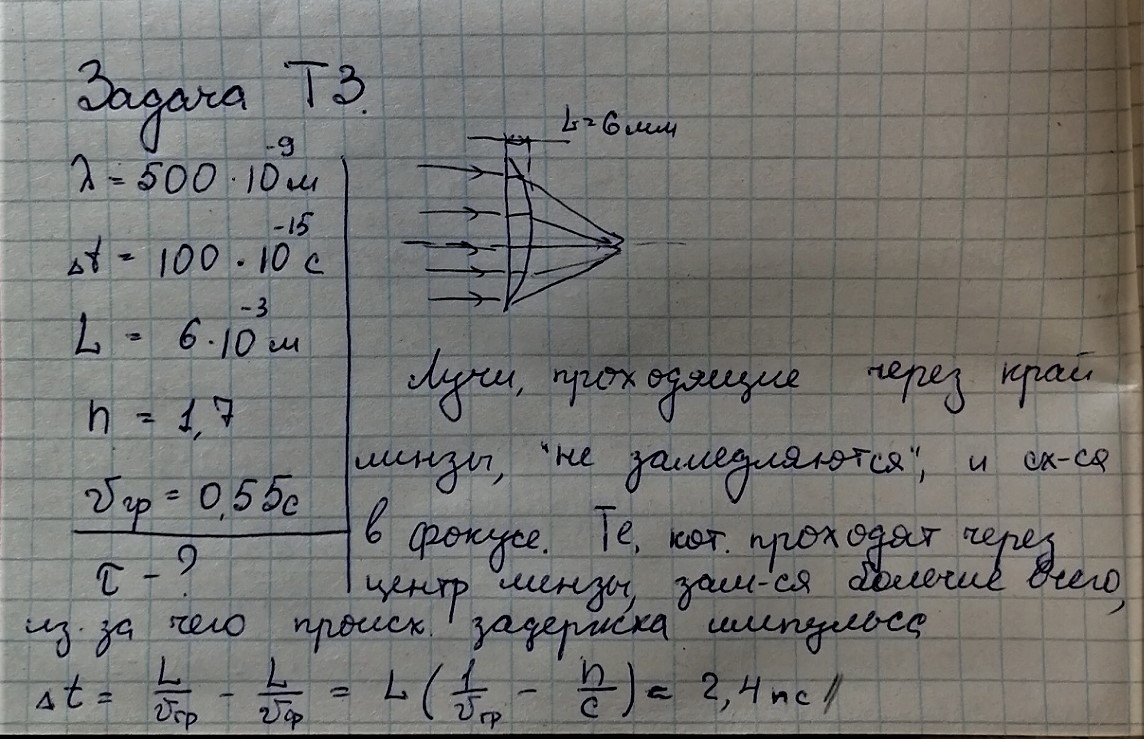 Задача Т3.
L=6мм
λ = 500·10⁻⁹м
Δt = 100·10⁻¹⁵с
L = 6·10⁻³м
n = 1,7
υгр = 0,55с
τ - ?
Лучи, проходящие через край
линзы, "не замедляются", и сх-ся
в фокусе. Те, кот. проходят через
центр линзы, зам-ся больше всего,
из-за чего происх. задержка импульса
Δt = L/υгр - L/υф = L(1/υгр - n/c) = 2,4пс //